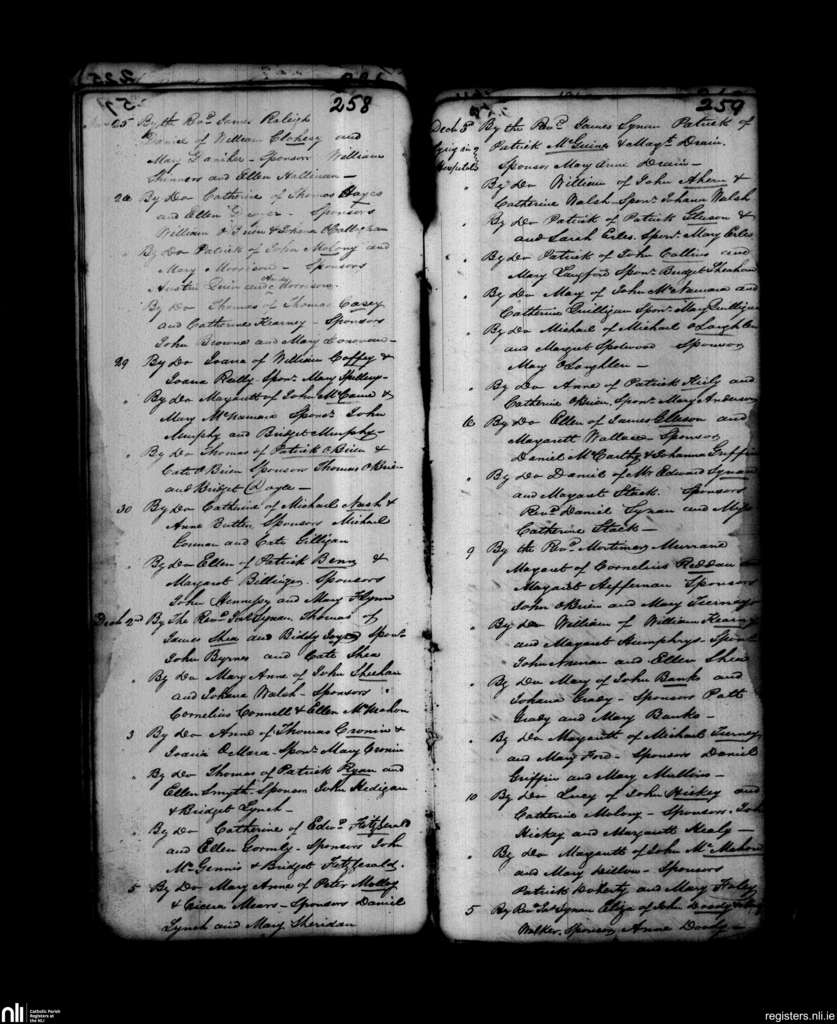 258
25 By the Revd James Raleigh
Daniel of William Clohesy and
Mary Danihe - Sponsors William
Skinners and Ellen Hallinan -
28 By Do Catherine of Thomas Hayes
and Ellen - Sponsors
William O Brien & Johana O Callaghan
By Do Patrick of John Molony and
Mary Morrison - Sponsors
Austin Quin and Morrison.
By Do Thomas of Thomas Casey
and Catherine Kearney - Sponsors
John Browne and Mary Donovan -
29 By Do Joana of William Coffey &
Joana Reilly Sponr Mary
" By Do Margarett of John McCaine &
Mary McNamara Sponrs John
Murphy and Bridget Murphy -
" By Do Thomas of Patrick O Brien &
Cate O Brien Sponsors Thomas O Brien
and Bridget Doyle -
30 By Do Catherine of Michael Nash &
Anne Butler Sponsors Michael
Gorman and Cate Gilligan
" By Do Ellen of Patrick Benn &
Margaret Bellinger. Sponsors
John Hennessy and Mary Flynn
Decb 2nd By The Revd Jas Synan Thomas of
James Shea and Biddy Joyce Sponrs
John Byrnes and Cate Shea
" By Do Mary Anne of John Sheehan
and Johana Walsh - Sponsors
Cornelius Connell & Ellen McMahon
3 By Do Anne of Thomas Cronin &
Joana O Mara - Sponr Mary Cronin
" By Do Thomas of Patrick Ryan and
Ellen Smyth Sponsors John Hedigan
& Bridget Lynch -
" By Do Catherine of Edwd Fitzgerald
and Ellen Gormly - Sponsors John
McGennis & Bridget Fitzgerald.
5 By Do Mary Anne of Peter Molloy
& Mears - Sponsors Daniel
Lynch and Mary Sheridan
259
Decb 5th By the Revd James Synan Patrick of
Lying in Patrick McGuine & Margt Drain.
Hospital Sponsor Mary Anne Drain -
" By Do William of John Ahern &
Catherine Walsh Sponr Johana Walsh
" By Do Patrick of Patrick &
and Sarah Erles. Sponr Mary Erles
" By Do Patrick of John Collins and
Mary Langford Sponr Bridget Sheehan
" By Do Mary of John McNamara and
Catherine Quilligan Sponr Mary Quilligan
" By Do Michael of Michael O Loughlen
and Margret Sponsor
Mary O Loughlen -
" By Do Anne of Patrick Kiely and
Catherine O Brien. Sponr Mary Anderson
6 By Do Ellen of James Ellison and
Margarett Wallace - Sponsors
Daniel McCarthy & Johanna Griffin
" By Do Daniel of Mr Edward Synan
and Margaret Stack. Sponsors
Revd Daniel Synan and Miss
Catherine Stack -
9 By the Revd Mortimer Murrane
Margaret of Cornelius Reddan
Margaret Heffernan Sponsors
John O Brien and Mary Tierney
" By Do William of William Kearney
and Margaret Humphrys. Sponsors
John Noonan and Ellen Shea
" By Do Mary of John Banks and
Johana Grady - Sponsors Patt
Grady and Mary Banks -
" By Do Margarett of Michael Tierney
and Mary Ford - Sponsors Daniel
Griffin and Mary Mullins -
10 By Do Lucy of John Hickey and
Catherine Molony - Sponsors. John
Hickey and Margarett Healy -
" By Do Margarett of John McMahon
and Mary Dillon - Sponsors
Patrick Doherty and Mary Foley
5 By Revd Jas Synan Eliza of John Doody &
Walker. Sponsor Anne Doody -
nli
Catholic Parish
Registers at
the NLI
registers.nli.ie